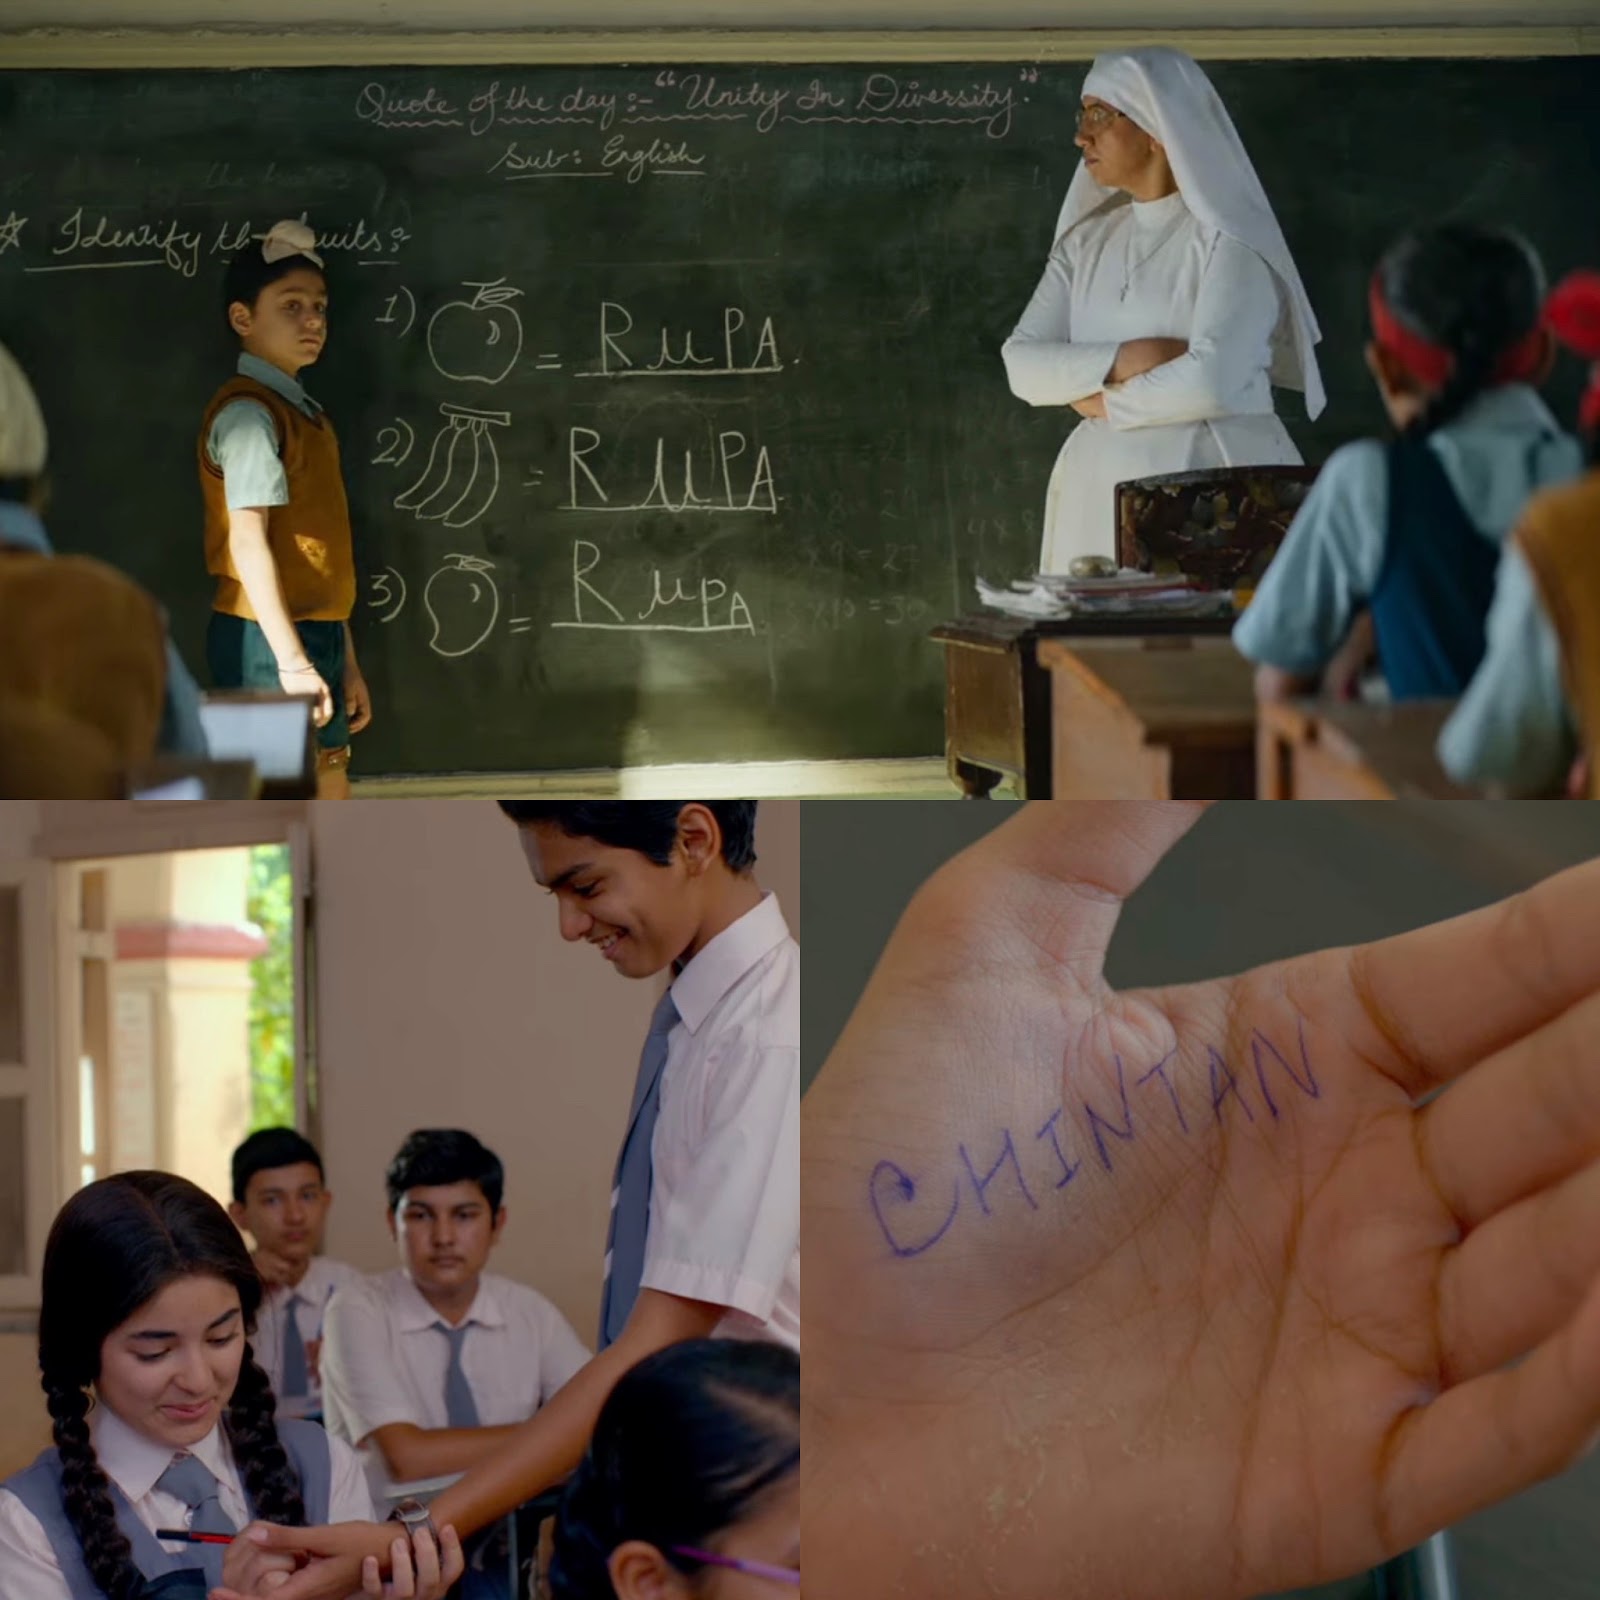 Quote of the day :- "Unity In Diversity."
Sub: English
☆ Identify the fruits:-
1) = RuPA.
2) = RuPA
3) = RuPA
CHINTAN